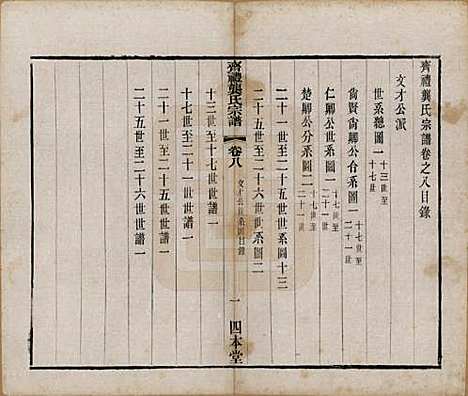 齊禮龔氏宗譜卷之八目錄
文才公派
世系總圖一 十三世至十七世
尙賢尙卿公合系圖一 十七世至二十一世
仁卿公世系圖二 十七世至二十一世
楚卿公分系圖一 十七世至二十一世
二十一世至二十五世世系圖十三
二十五世至二十六世世系圖二
齊禮龔氏宗譜
卷八
文才公派系圖目錄
一
四本堂
十三世至十七世世譜一
十七世至二十一世世譜一
二十一世至二十五世世譜一
二十五世至二十六世世譜一